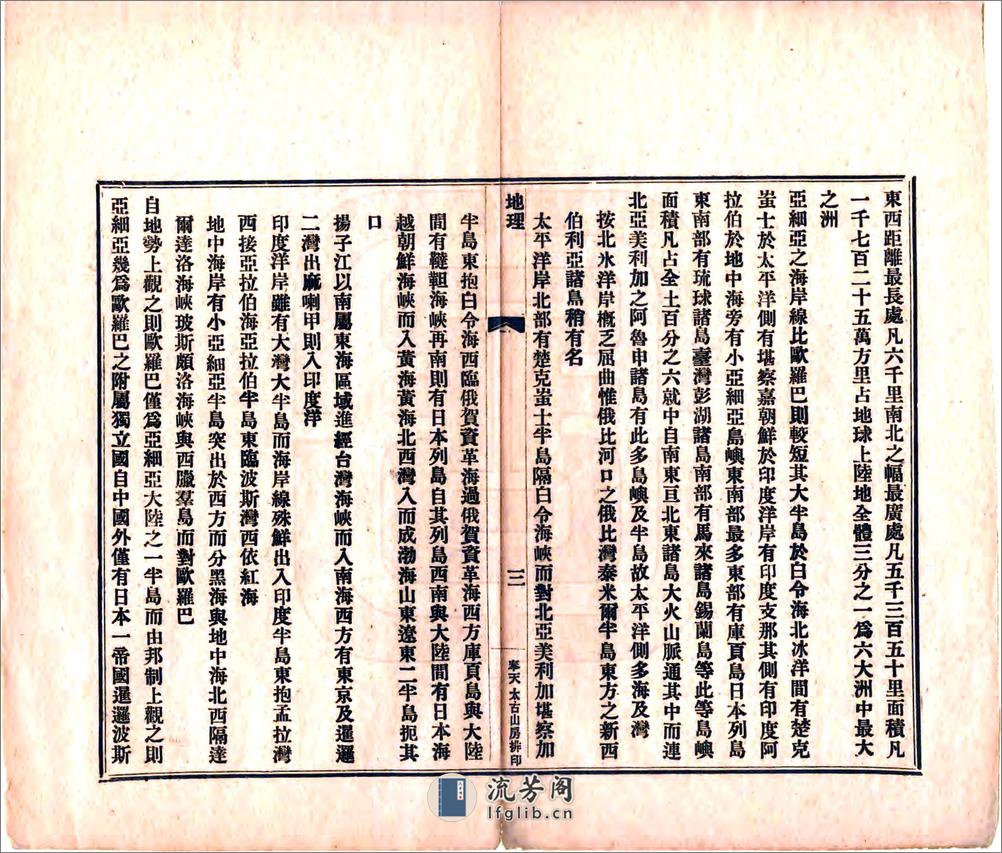 東西距離最長處凡六千里南北之幅最廣處凡五千三百五十里面積凡
一千七百二十五萬方里占地球上陸地全體三分之一爲六大洲中最大
之洲
亞細亞之海岸線比歐羅巴則較短其大半島於白令海北冰洋間有楚克
蚩士於太平洋側有堪察嘉朝鮮於印度洋岸有印度支那其側有印度阿
拉伯於地中海旁有小亞細亞島嶼東南部最多東部有庫頁島日本列島
東南部有琉球諸島臺灣彭湖諸島南部有馬來諸島錫蘭島等此等島嶼
面積凡占全土百分之六就中自南東亘北東諸島大火山脈通其中而連
北亞美利加之阿魯申諸島有此多島嶼及半島故太平洋側多海及灣
按北氷洋岸槪乏屈曲惟俄比河口之俄比灣泰米爾半島東方之新西
伯利亞諸島稍有名
太平洋岸北部有楚克蚩士半島隔白令海峽而對北亞美利加堪察加
地理
三
奉天太古山房排印
半島東抱白令海西臨俄賀資革海過俄賀資革海西方庫頁島與大陸
間有韃靼海峽再南則有日本列島自其列島西南與大陸間有日本海
越朝鮮海峽而入黃海黃海北西灣入而成渤海山東遼東二半島扼其
口
揚子江以南屬東海區域進經台灣海峽而入南海西方有東京及暹邏
二灣出麻喇甲則入印度洋
印度洋岸雖有大灣大半島而海岸線殊鮮出入印度半島東抱孟拉灣
西接亞拉伯海亞拉伯半島東臨波斯灣西依紅海
地中海岸有小亞細亞半島突出於西方而分黑海與地中海北西隔達
爾達洛海峽玻斯頗洛海峽與西臘羣島而對歐羅巴
自地勢上觀之則歐羅巴僅爲亞細亞大陸之一半島而由邦制上觀之則
亞細亞幾爲歐羅巴之附屬獨立國自中國外僅有日本一帝國暹邏波斯
流芳阁
lfglib.cn